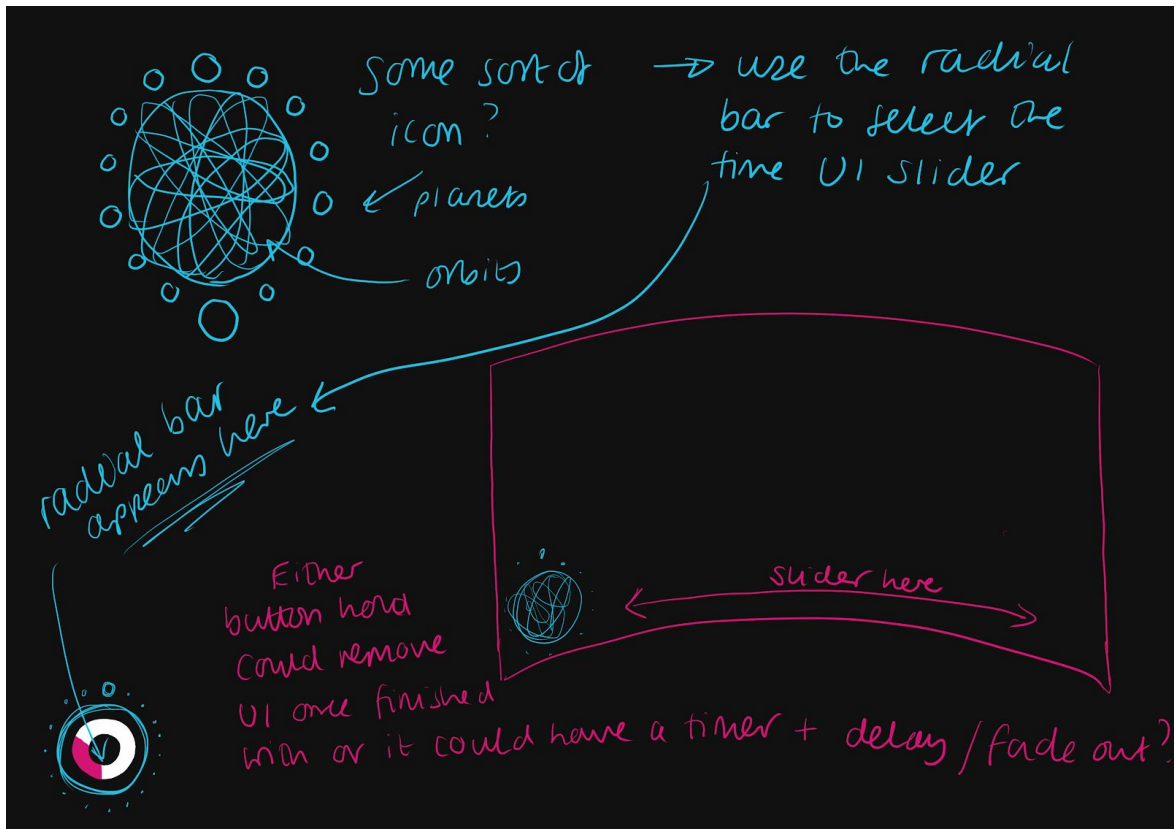 Some sort of
icon?
planets
orbits
use the radial
bar to select the
time UI slider
radial bar
appears here
slider here
Either
button hold
could remove
UI once finished
with or it could have a timer + delay / fade out?